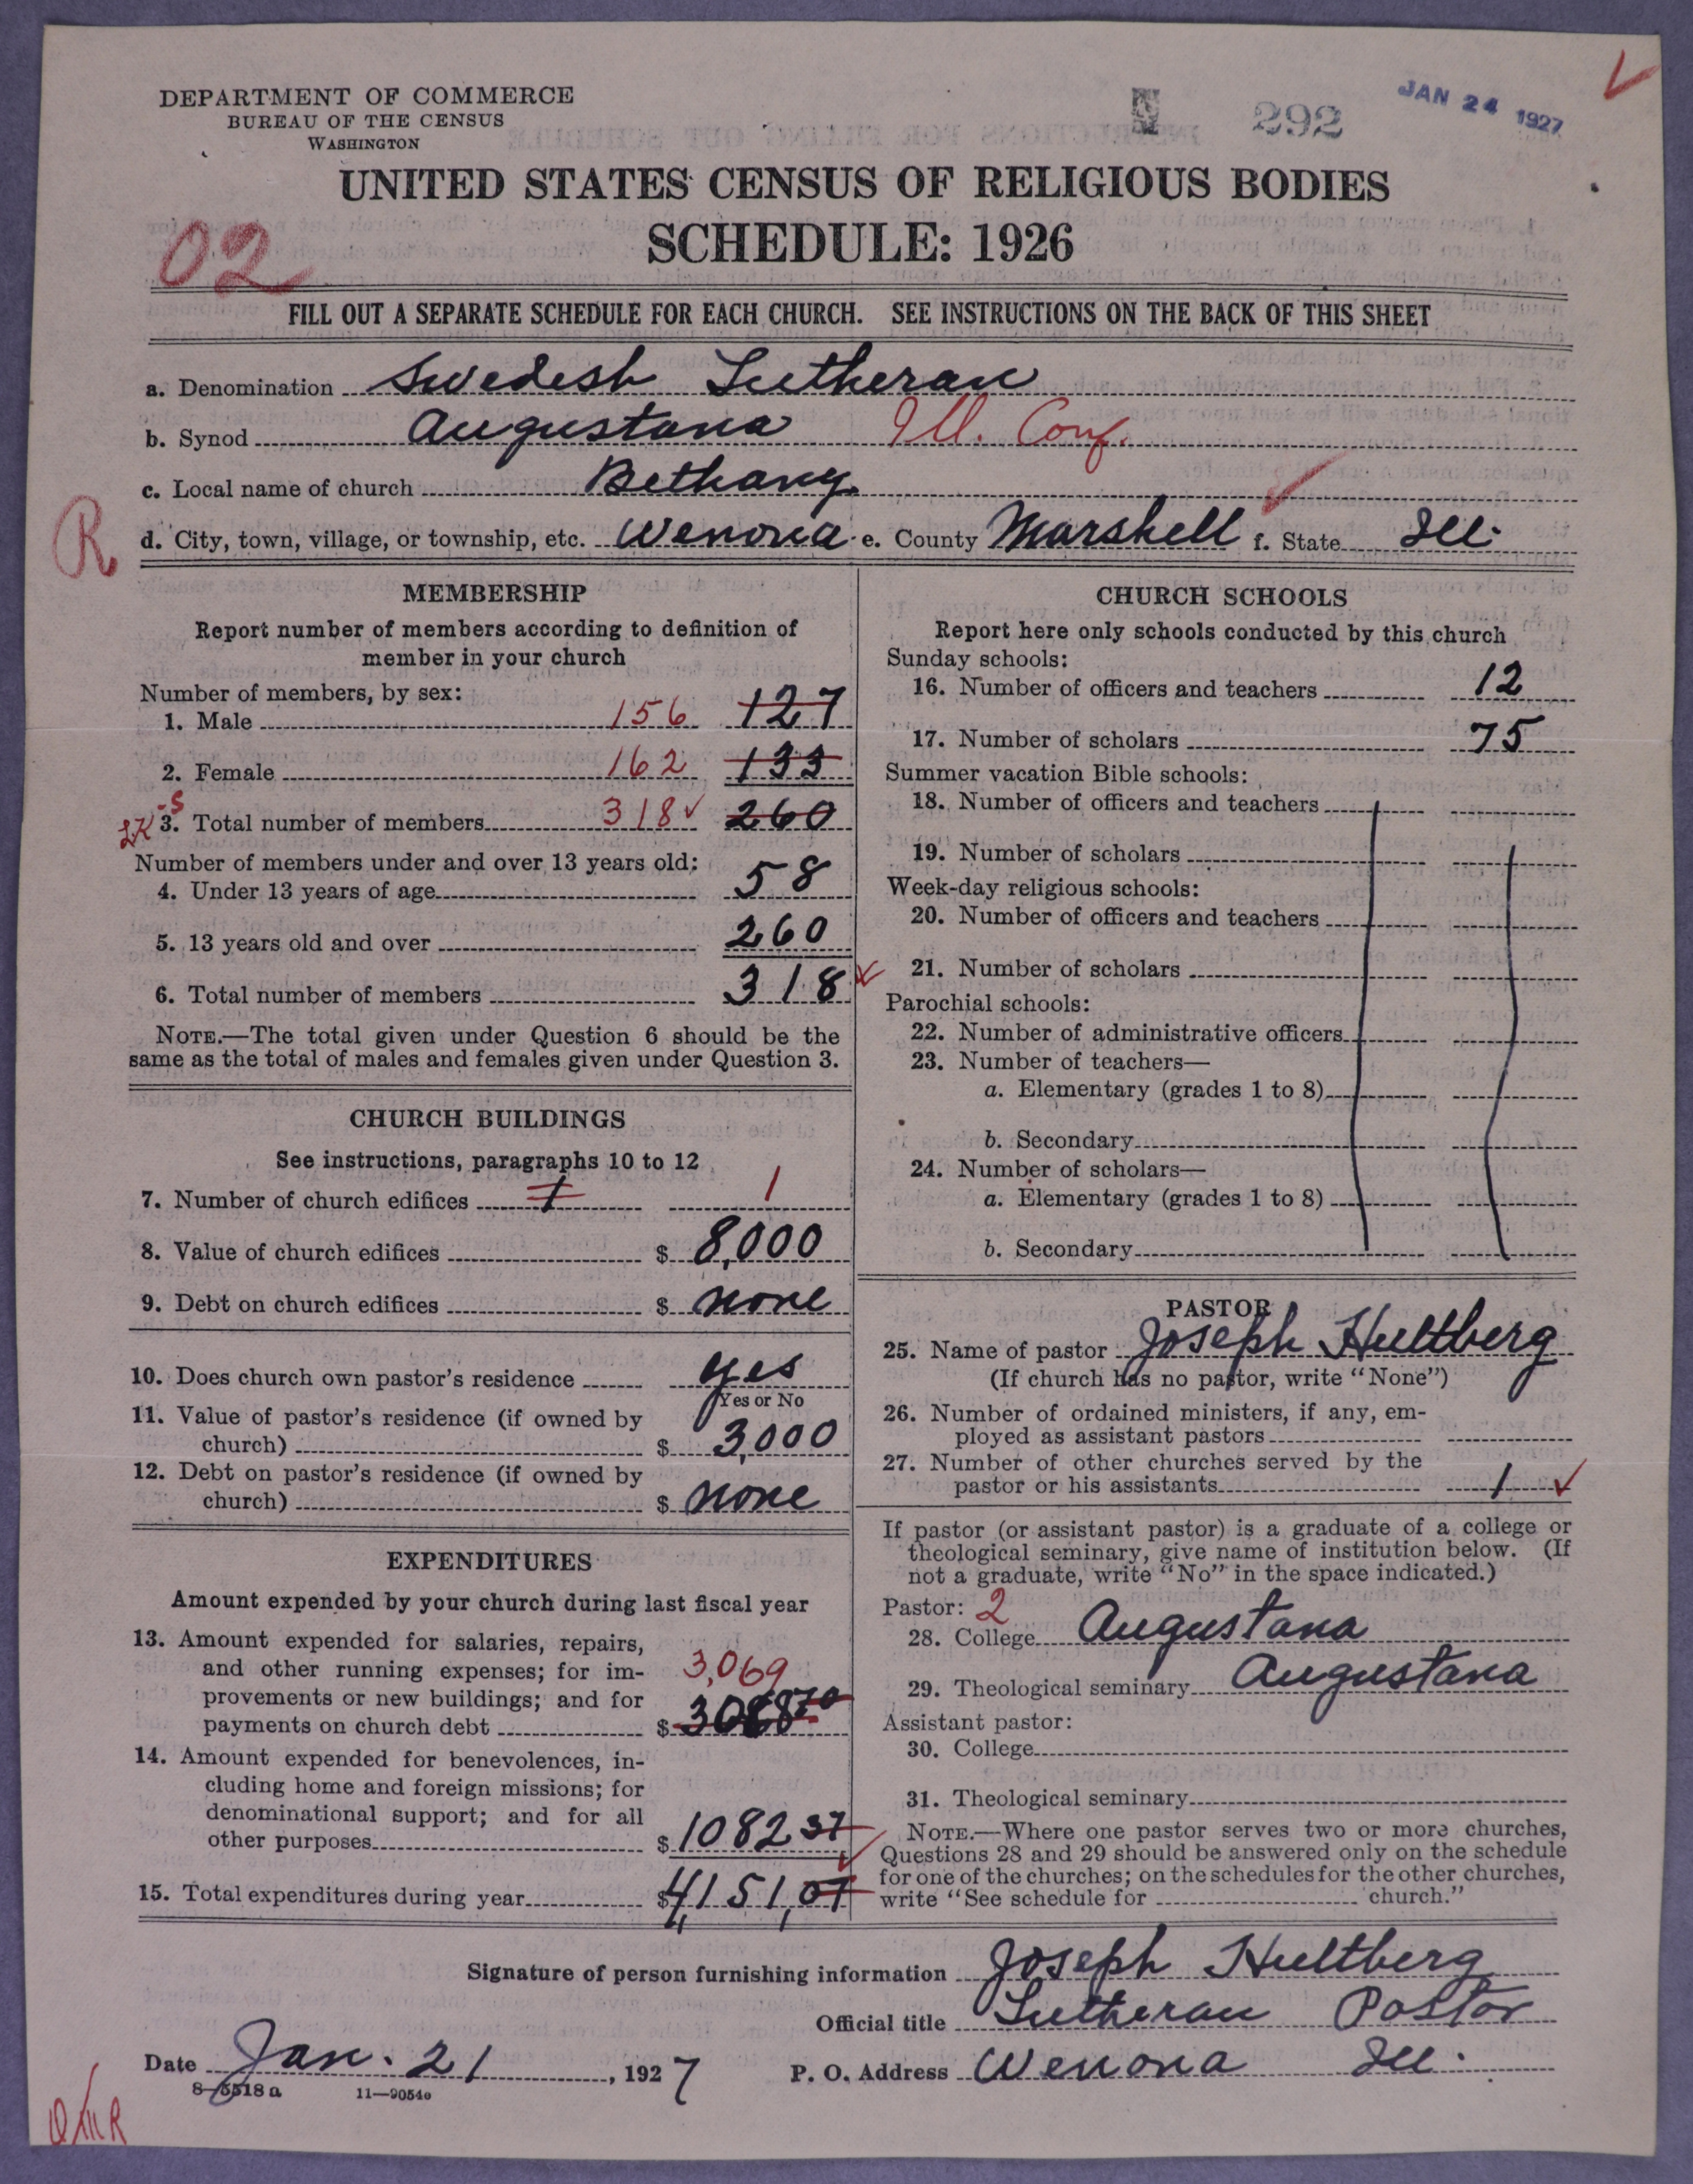 DEPARTMENT OF COMMERCE
BUREAU OF THE CENSUS
WASHINGTON
N 292 JAN 24 1927
UNITED STATES CENSUS OF RELIGIOUS BODIES
SCHEDULE: 1926
02
FILL OUT A SEPARATE SCHEDULE FOR EACH CHURCH. SEE INSTRUCTIONS ON THE BACK OF THIS SHEET
a. Denomination Swedish Lutheran
b. Synod Augustana Ill. Conf.
c. Local name of church Bethany
R
d. City, town, village, or township, etc. Wenona e. County Marshell f. State Ill.
MEMBERSHIP
Report number of members according to definition of
member in your church
Number of members, by sex:
1. Male 156 127
2. Female 162 133
3. Total number of members 318 260
Number of members under and over 13 years old:
4. Under 13 years of age 58
5. 13 years old and over 260
6. Total number of members 318
NOTE.—The total given under Question 6 should be the
same as the total of males and females given under Question 3.
CHURCH BUILDINGS
See instructions, paragraphs 10 to 12
7. Number of church edifices 1 1
8. Value of church edifices $ 8,000
9. Debt on church edifices $ none
10. Does church own pastor's residence yes
Yes or No
11. Value of pastor's residence (if owned by
church) $ 3,000
12. Debt on pastor's residence (if owned by
church) $ none
EXPENDITURES
Amount expended by your church during last fiscal year
13. Amount expended for salaries, repairs,
and other running expenses; for im-
3,069
provements or new buildings; and for
payments on church debt $ 3068 70
14. Amount expended for benevolences, in-
cluding home and foreign missions; for
denominational support; and for all
other purposes $ 1082 37
15. Total expenditures during year $ 4,151,07
CHURCH SCHOOLS
Report here only schools conducted by this church
Sunday schools:
16. Number of officers and teachers 12
17. Number of scholars 75
Summer vacation Bible schools:
18. Number of officers and teachers
19. Number of scholars
Week-day religious schools:
20. Number of officers and teachers
21. Number of scholars
Parochial schools:
22. Number of administrative officers
23. Number of teachers—
a. Elementary (grades 1 to 8)
b. Secondary
24. Number of scholars—
a. Elementary (grades 1 to 8)
b. Secondary
PASTOR
25. Name of pastor Joseph Hultberg
(If church has no pastor, write "None")
26. Number of ordained ministers, if any, em-
ployed as assistant pastors
27. Number of other churches served by the
pastor or his assistants 1
If pastor (or assistant pastor) is a graduate of a college or
theological seminary, give name of institution below. (If
not a graduate, write "No" in the space indicated.)
Pastor: 2
28. College Augustana
29. Theological seminary Augustana
Assistant pastor:
30. College
31. Theological seminary
NOTE.—Where one pastor serves two or more churches,
Questions 28 and 29 should be answered only on the schedule
for one of the churches; on the schedules for the other churches,
write "See schedule for church."
Signature of person furnishing information Joseph Hultberg
Official title Lutheran Pastor
Date Jan. 21, 1927 P. O. Address Wenona Ill.
8—5518 a 11—9054a